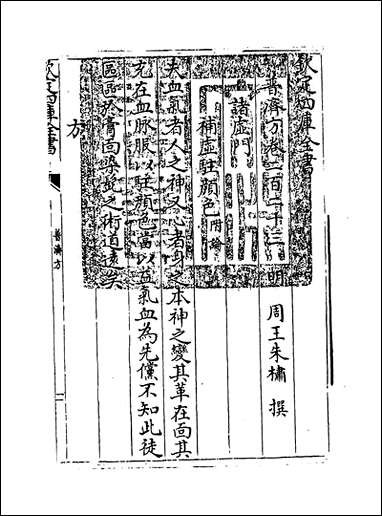 欽定四庫全書
普濟方卷二百二十三 明 周王朱橚 撰
諸虛門
補虛駐顔色附論
夫血氣者人之神又心者身之本神之變其華在面其
充在血脉服以駐顔色當以益氣血為先儻不知此徒
區區於膏面染髭之術道逺矣
方
欽定四庫全書
普濟方
一